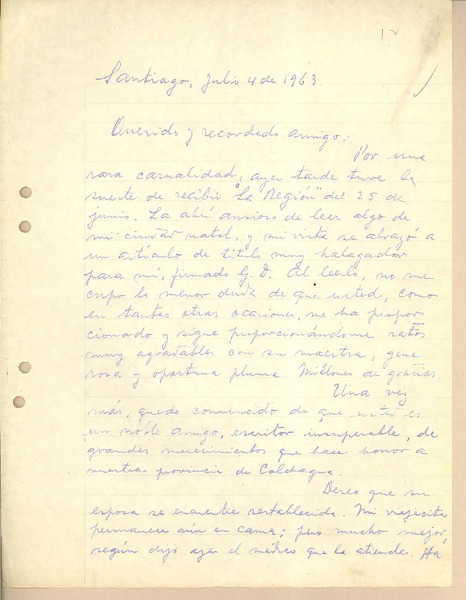 Santiago, Julio 4 de 1963
Querido y recordado amigo:
Por una
rara casualidad, ayer tarde tuve la
suerte de recibir "La Región" del 25 de
junio. La abrí ansioso de leer algo de
mi ciudad natal, y mi vista se abrazó a
un artículo de título muy halagador
para mí, firmado G. D. Al leerlo, no me
cupo la menor duda de que usted, como
en tantas otras ocasiones, me ha propor
cionado y sigue proporcionándome ratos
muy agradables con su maestra, gene
rosa y oportuna pluma. Millones de gracias.
Una vez
más, quedo convencido de que usted es
un noble amigo, escritor insuperable, de
grandes merecimientos que hace honor a
nuestra provincia de Colchagua.
Deseo que su
esposa se encuentre restablecida. Mi viejecita
permanece aún en cama; pero mucho mejor,
según dijo ayer el médico que la atiende. Ha